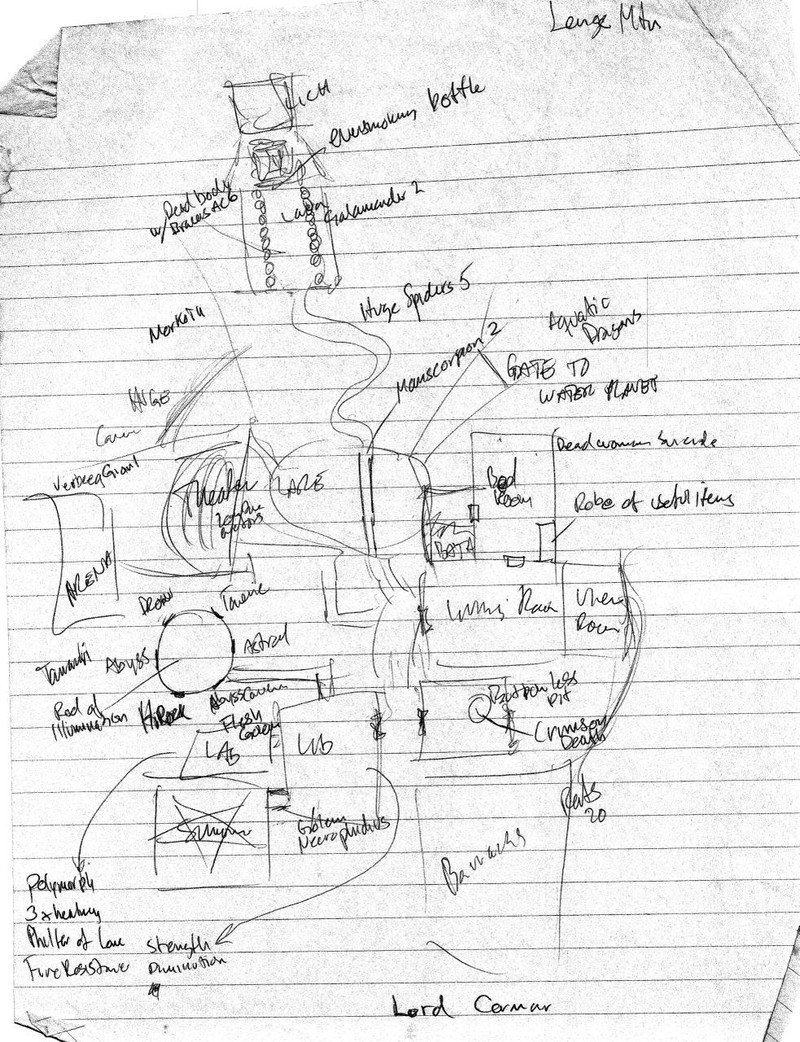 Large Mtn
LICH
Eversmoking bottle
Dead body
w/ Bracers AC6
Lava
Salamander 2
Huge Spiders 5
Morkoth
Manscorpion 2
Aquatic
Dragons
GATE TO
WATER PLANET
HUGE
Cavern
Verbeeg Giant
Theater
LAKE
Bed
Room
Dead woman Suicide
Robe of useful items
BATH
ARENA
DROW
Living Room
Room
Astral
Abyss
Rod of
Illumination
Flesh
Golem
LAB
LIB
Bottomless
Pit
Crimson
Death
Golem
Necrophidius
Rats
20
Barracks
Polymorph
3x healing
Philter of Love
Fire Resistance
Strength
Diminution
Lord Cormar